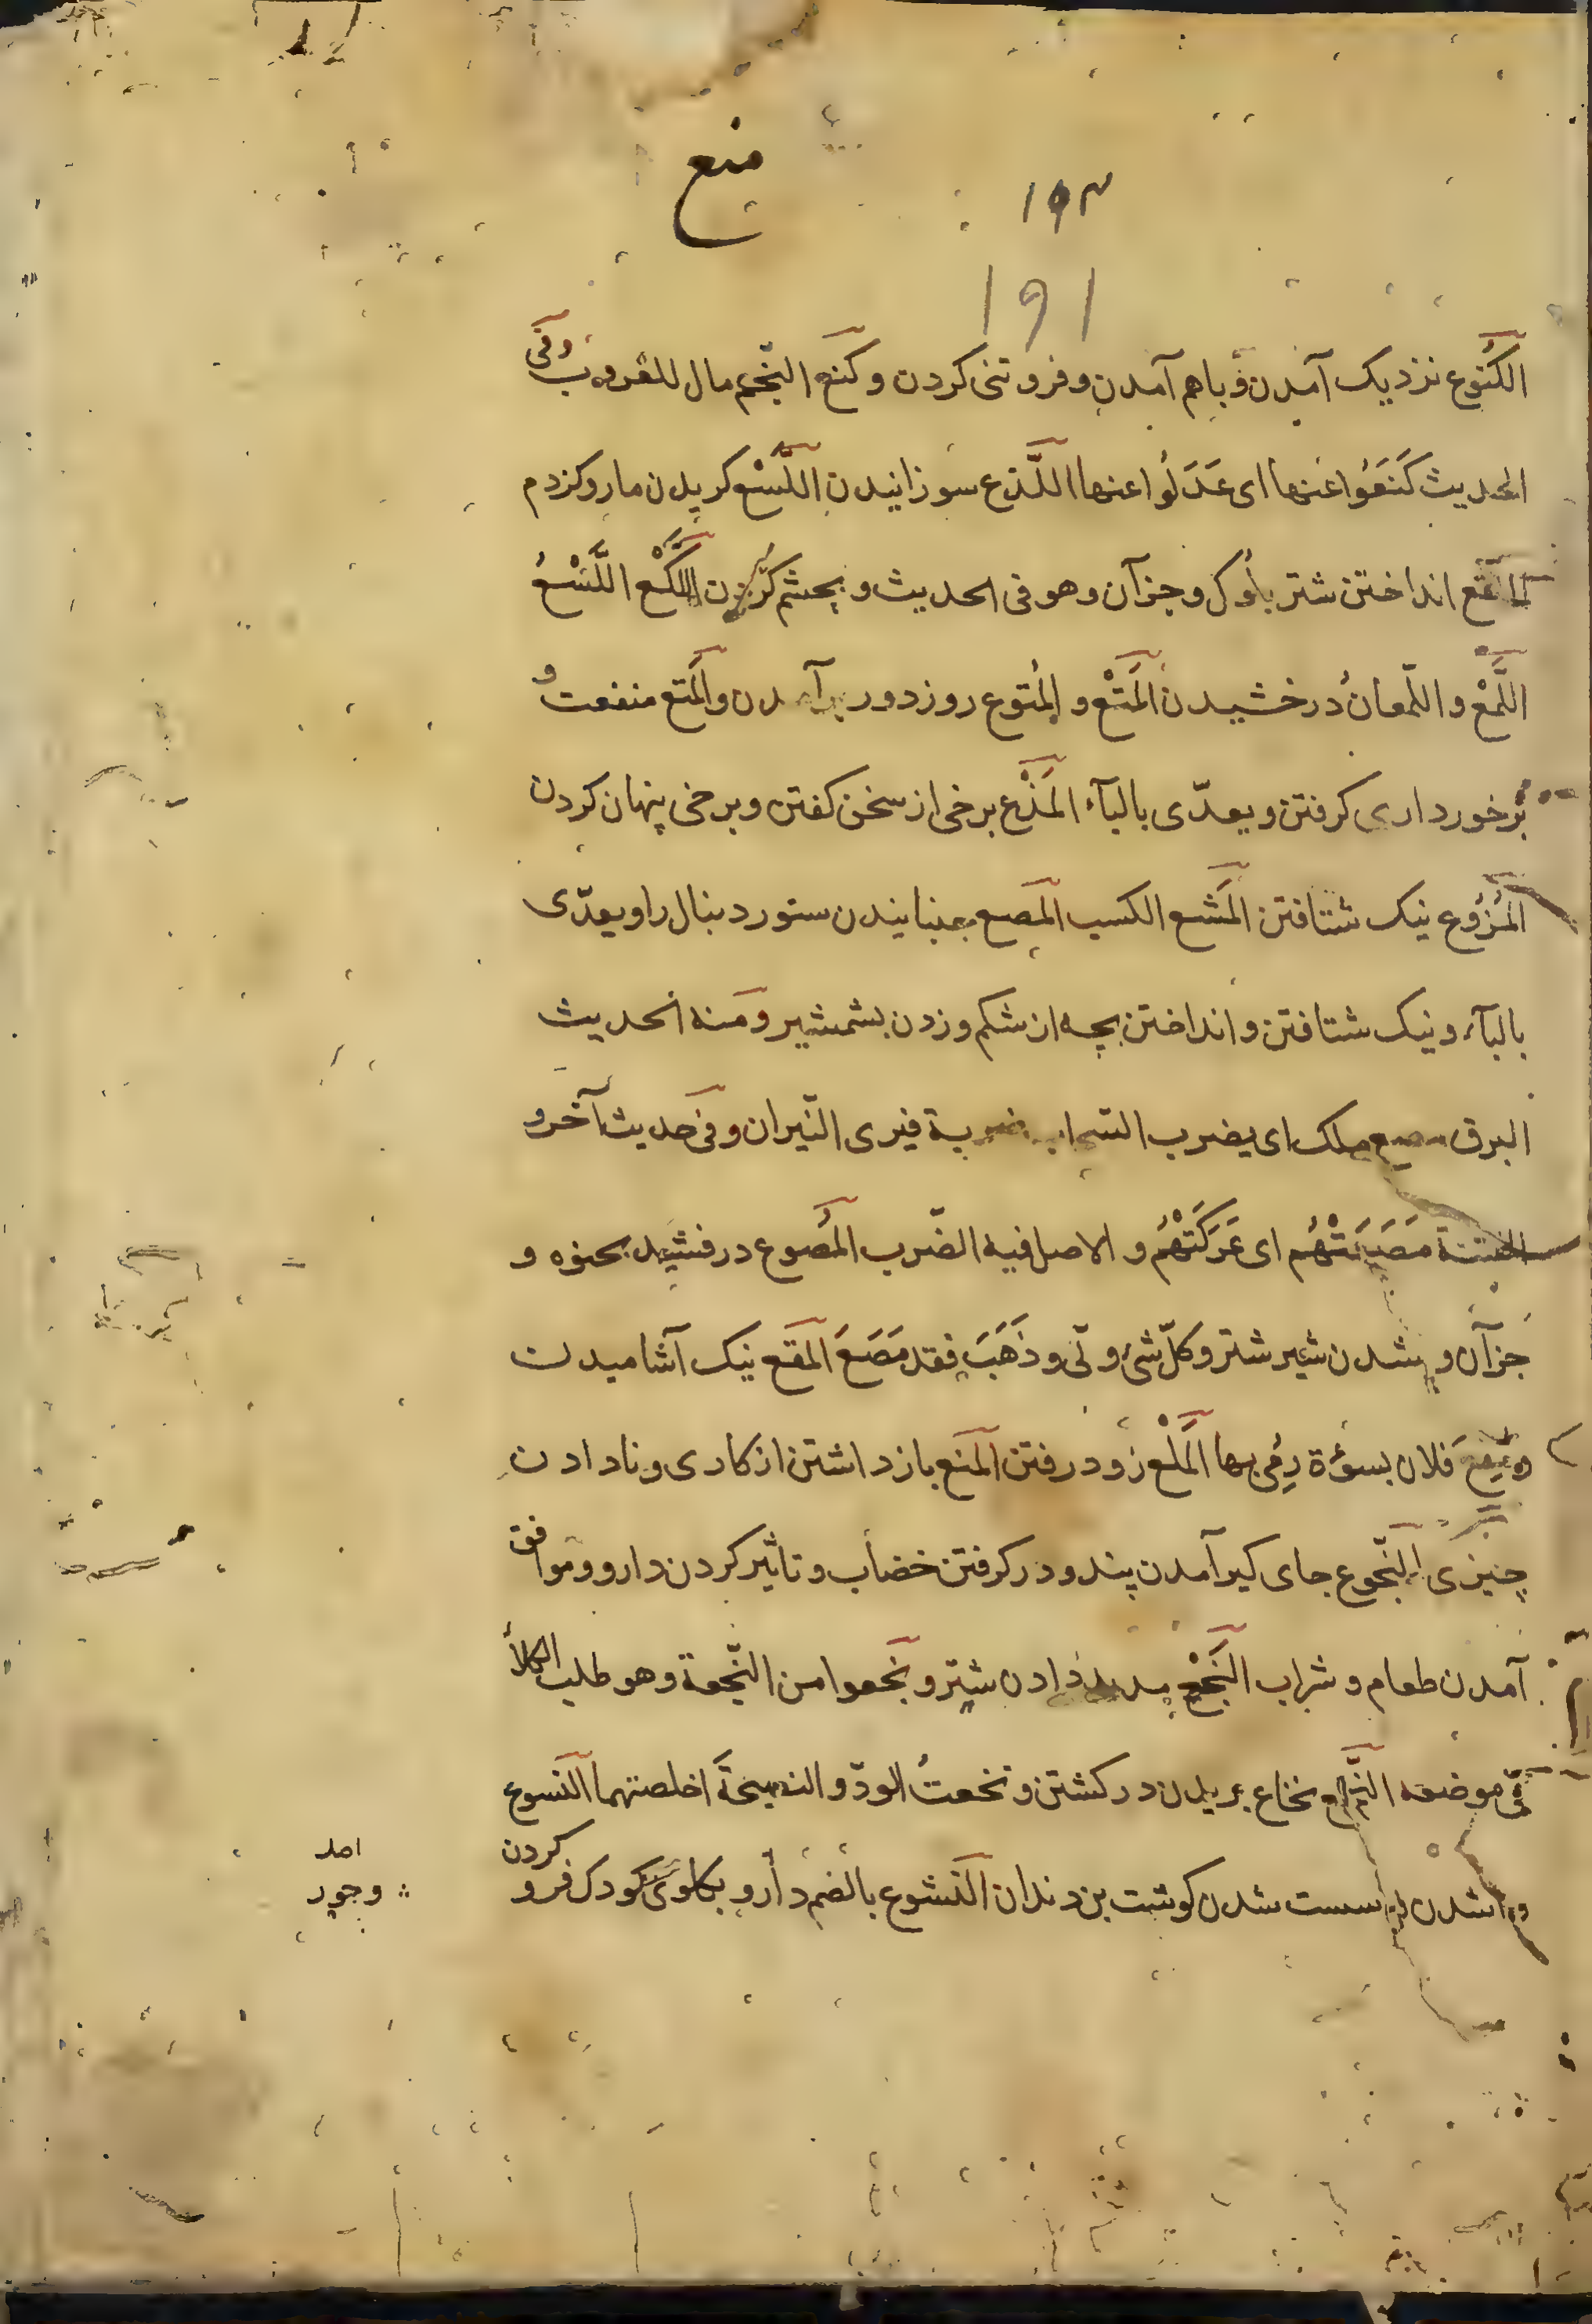 منع
۱۹۳
۱۹۱
الكُنُوع نزدیک آمدن و باهم آمدن و فروتنی کردن و کنع النّجم مال للغروب و فی
الحدیث کَنَعُوا عنها ای عَدَلُوا عنها اللَّذع سوزانیدن اللَّسْع کزیدن مار و کزدم
انداختن شتر بأُوک و جزآن و هو فی الحدیث و بچشم اللَّكْع اللَّسْعُ
اللَّمْع و اللّمعان درخشیدن المَتْع و المُتوع روز دور برآمدن و المَتع منفعت و
برخورداری کرفتن و یعدّی بالبآء المَذْع برخی از سخن کفتن و برخی پنهان کردن
المُزُوع نیک شتافتن المَشع الکسب المَصع جنبانیدن ستور دنبال را و یعدّی
بالبآء و نیک شتافتن و انداختن بچه از شکم و زدن بشمشیر و منه الحدیث
البرق مصع ملک ای یضرب السّحاب ضربة فیری النّیران و فی حدیث آخر و
الفتنة مَصَعَتْهُم ای عَرَکَتْهُم و الاصل فیه الضّرب المُصوع درفشیدن و
جزآن و بشدن شیر شتر و کلّ شیء ولّی و ذَهَبَ فقد مَصَعَ المَقع نیک آشامیدن
و مُقِعَ فلان بسوءة رُمی بها المَلْع زود رفتن المَنع بازداشتن از کاری و نادادن
چیزی النّجوع جای کیر آمدن پند و درکرفتن خضاب و تاثیر کردن دارو و موافق
آمدن طعام و شراب النَّجْع دادن شتر و نجعوا من النّجعة و هو طلب الکلأ
فی موضعه النَّخْع نخاع بریدن در کشتن و نخعتُ الودّ و النصیحةَ اخلصتهما النسوع
و اشدن سست شدن کوشت بن دندان النشوع بالضم دارو بکلوی کودک فرو کردن
امد
وجور